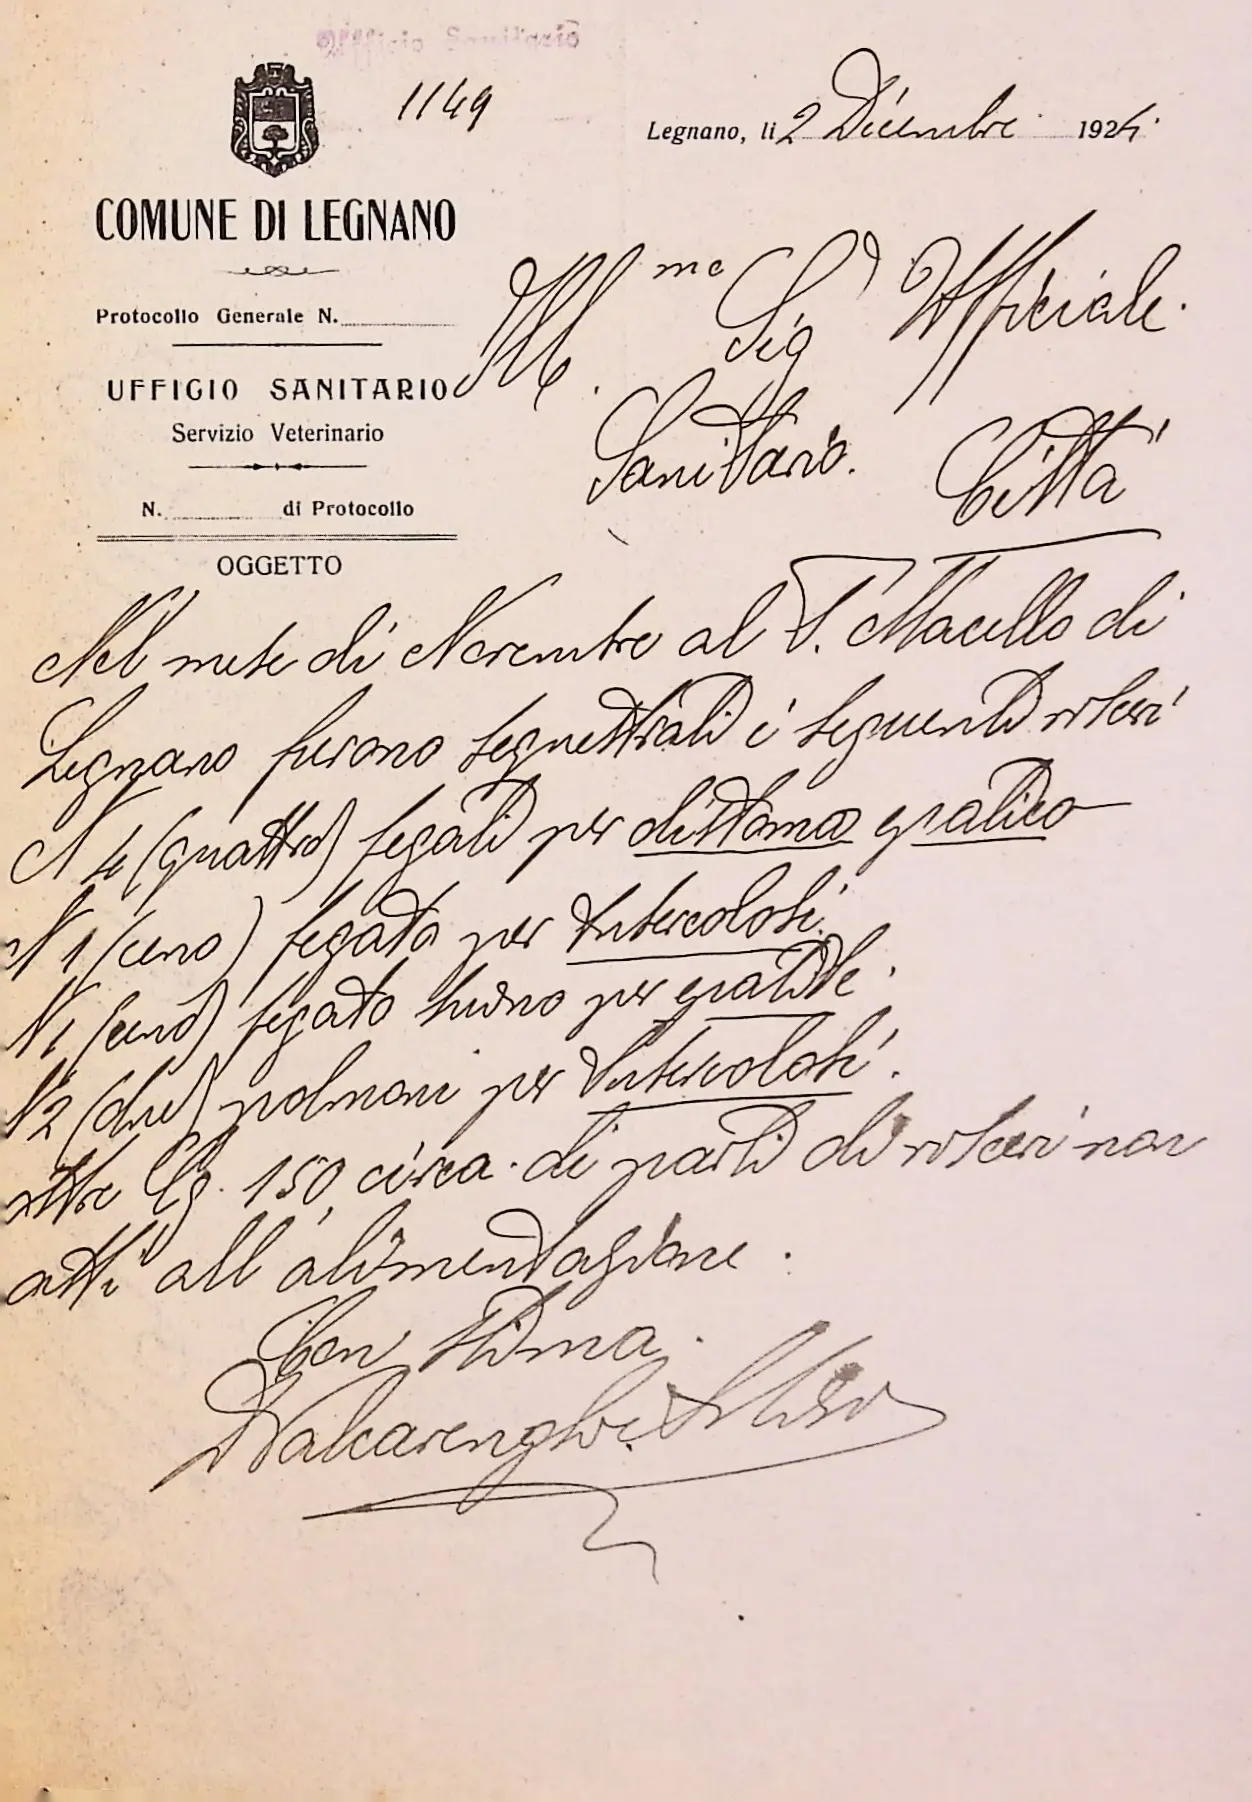 Ufficio Sanitario
1149
Legnano, li 2 Dicembre 1924.
COMUNE DI LEGNANO
Protocollo Generale N.
UFFICIO SANITARIO
Servizio Veterinario
N. di Protocollo
OGGETTO
Ill.me Sigr Ufficiale.
Sanitario. Città
Nel mese di Novembre al P. Macello di
Legnano furono sequestrati i seguenti visceri
N 4 (quattro) fegati per distoma epatico
N 1 (uno) fegato per tubercolosi.
N 1 (uno) fegato suino per epatite.
N 2 (due) polmoni per tubercolosi.
oltre Cg. 150 circa di parti di visceri non
atti all'alimentazione.
Con stima.